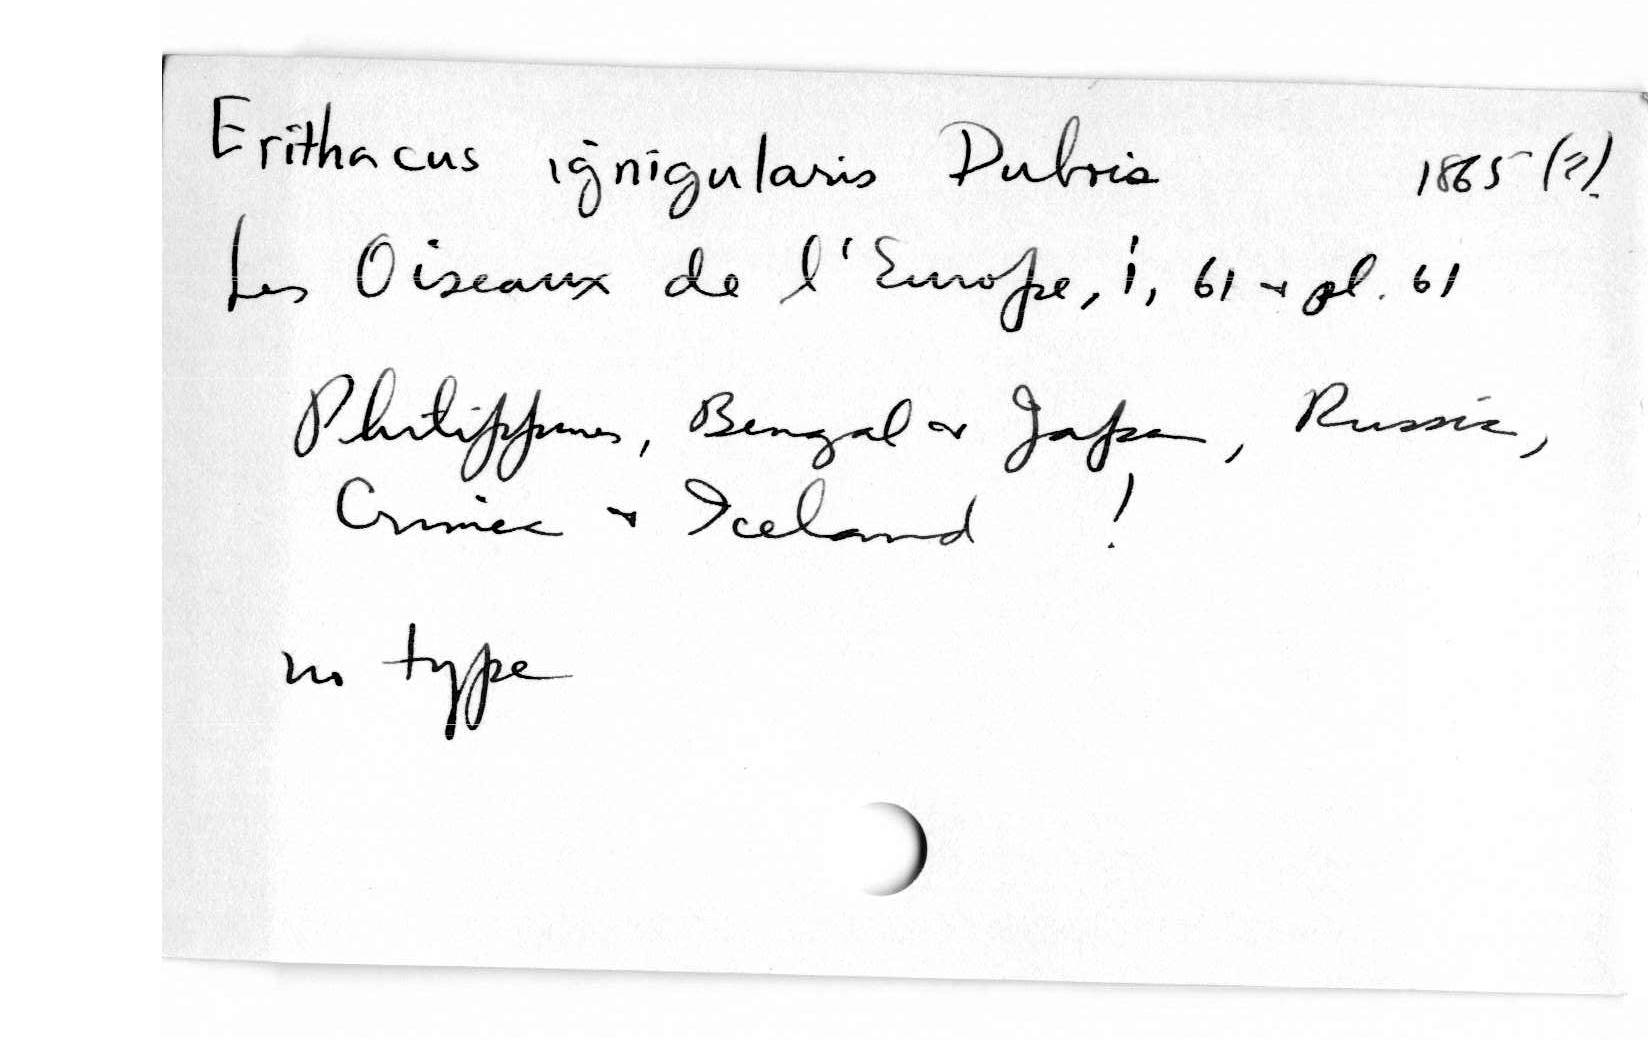 Erithacus ignigularis Dubois 1865 (?)
Les Oiseaux de l'Europe, i, 61 & pl. 61
Philippines, Bengal & Japan, Russia,
Crimea & Iceland !
no type